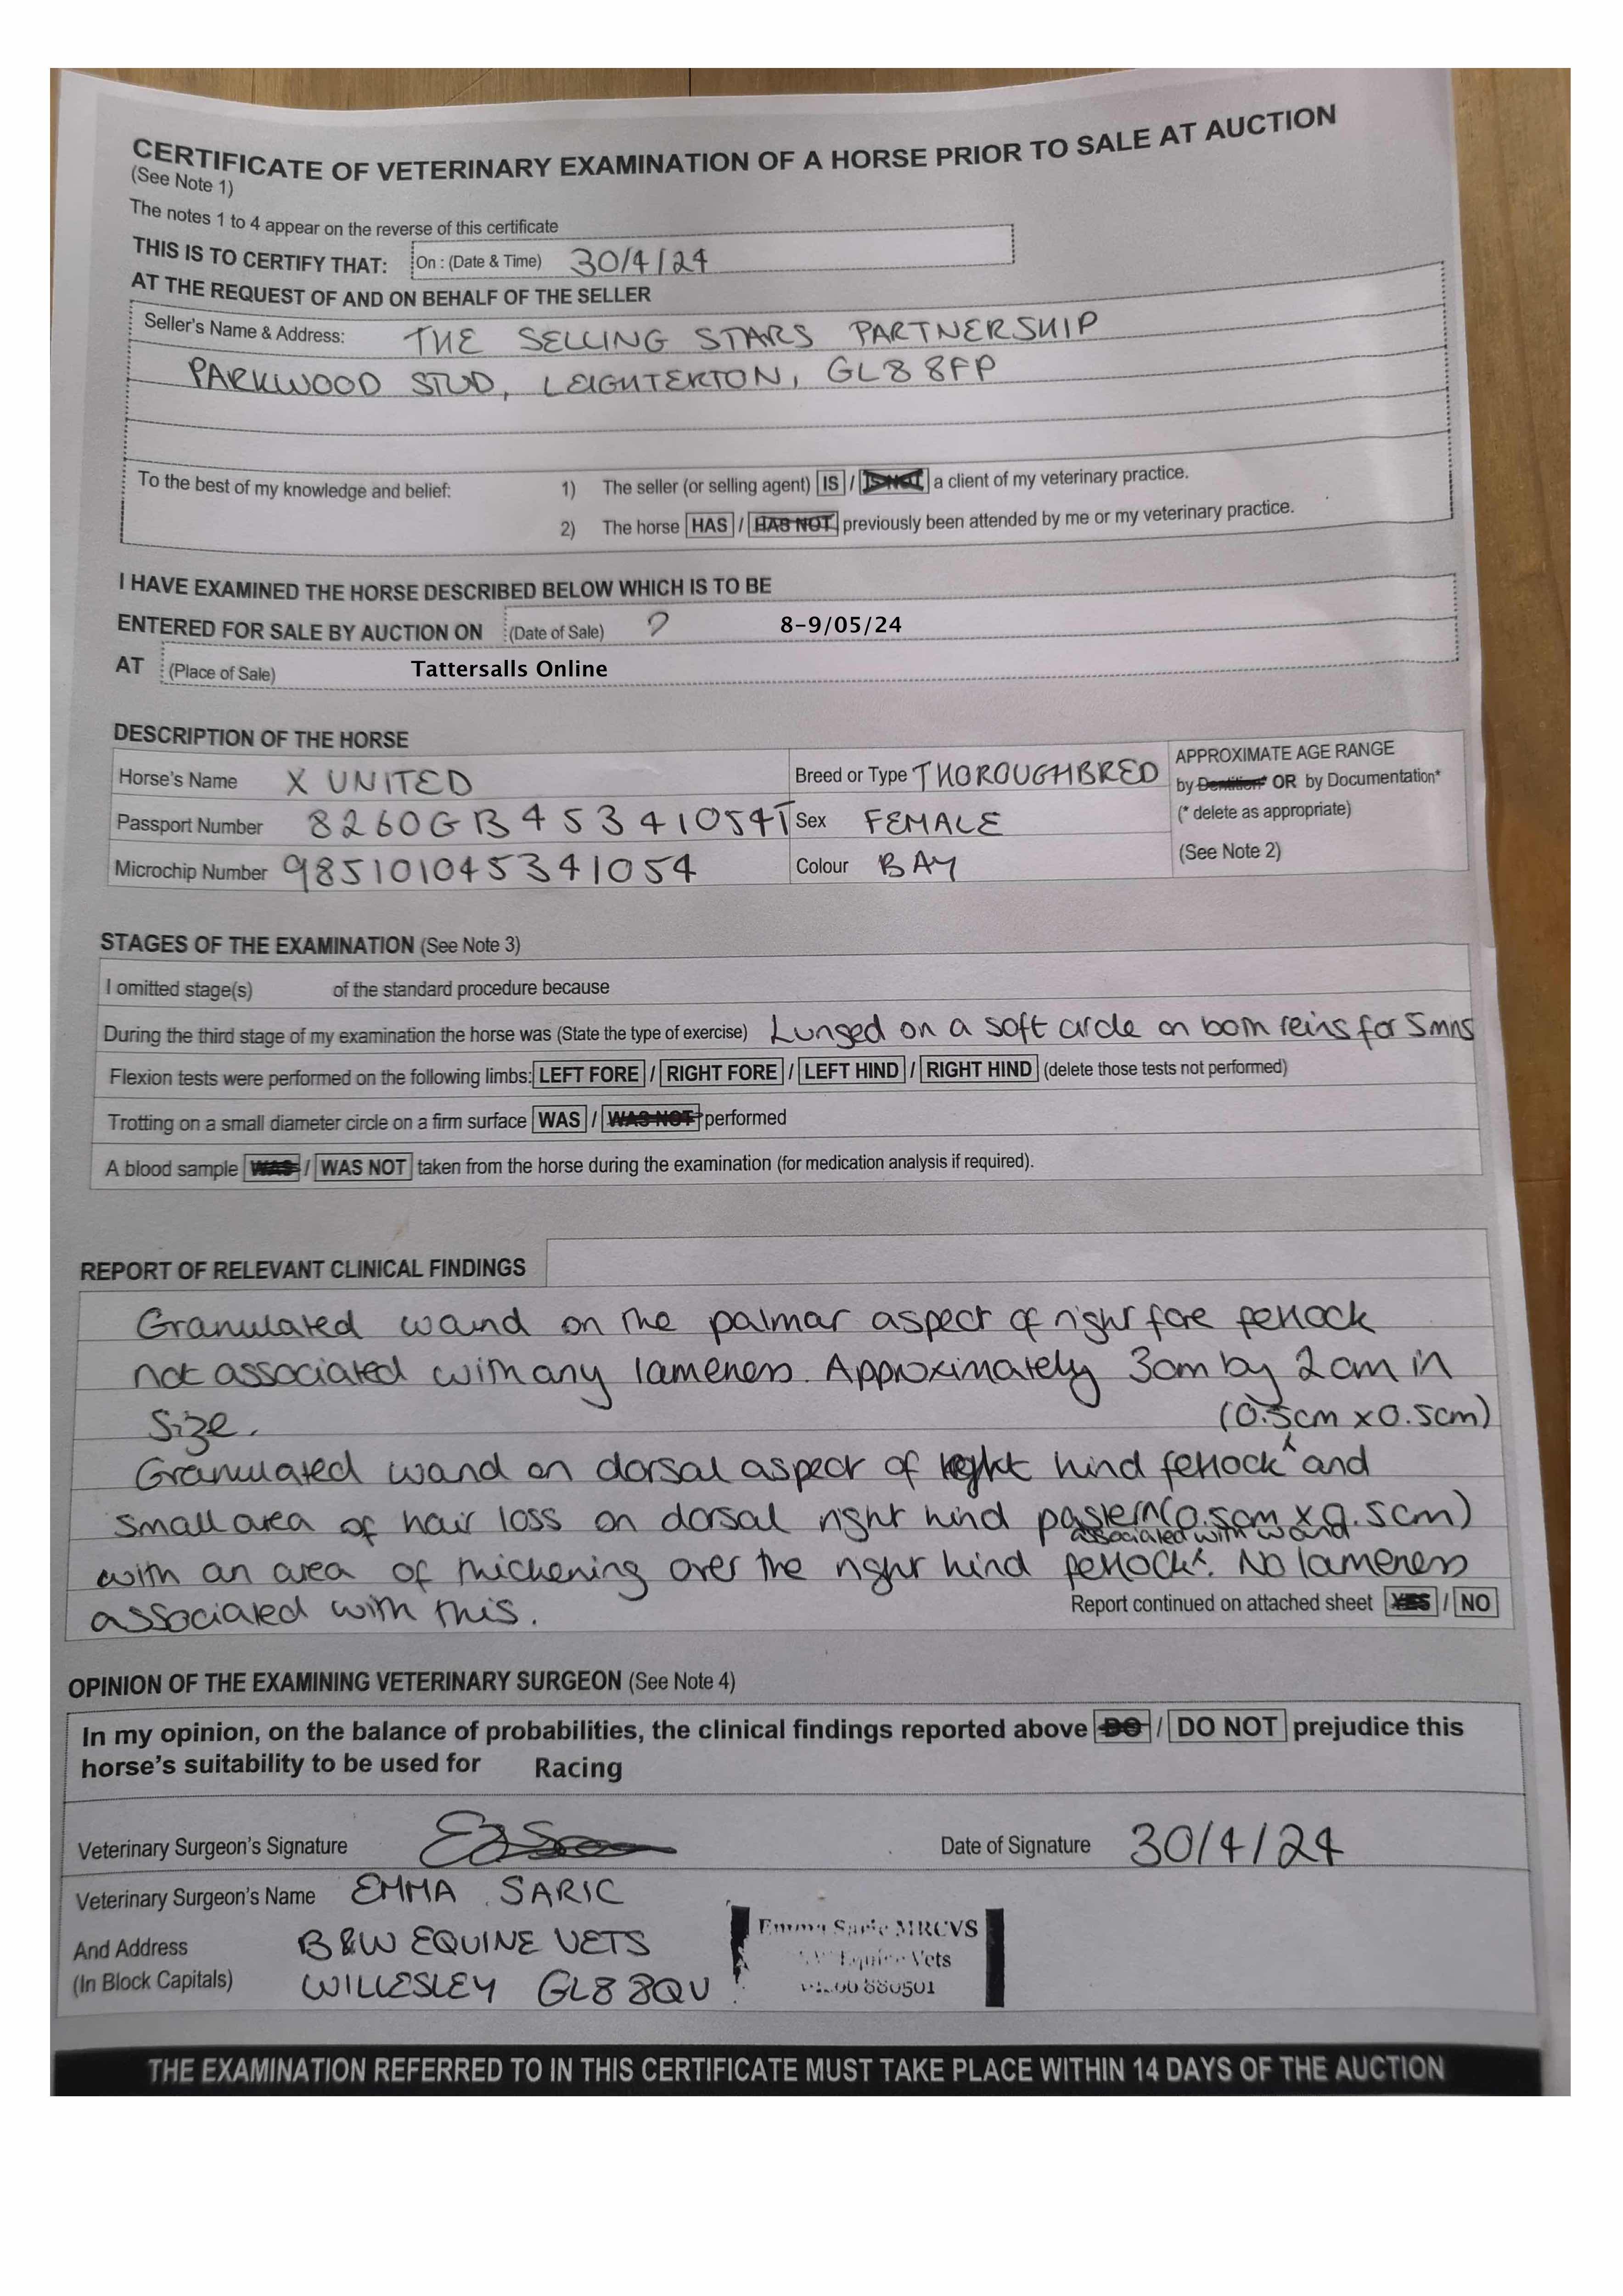 CERTIFICATE OF VETERINARY EXAMINATION OF A HORSE PRIOR TO SALE AT AUCTION
(See Note 1)
The notes 1 to 4 appear on the reverse of this certificate
THIS IS TO CERTIFY THAT: On : (Date & Time) 30/4/24
AT THE REQUEST OF AND ON BEHALF OF THE SELLER
Seller's Name & Address: THE SELLING STARS PARTNERSHIP
PARKWOOD STUD, LEIGHTERTON, GL8 8FP
To the best of my knowledge and belief: 1) The seller (or selling agent) IS / IS NOT a client of my veterinary practice.
2) The horse HAS / HAS NOT previously been attended by me or my veterinary practice.
I HAVE EXAMINED THE HORSE DESCRIBED BELOW WHICH IS TO BE
ENTERED FOR SALE BY AUCTION ON (Date of Sale) ? 8-9/05/24
AT (Place of Sale) Tattersalls Online
DESCRIPTION OF THE HORSE
Horse's Name X UNITED Breed or Type THOROUGHBRED
Passport Number 8260GB45341054T Sex FEMALE
Microchip Number 985101045341054 Colour BAY
APPROXIMATE AGE RANGE
by Dentition* OR by Documentation*
(* delete as appropriate)
(See Note 2)
STAGES OF THE EXAMINATION (See Note 3)
I omitted stage(s) of the standard procedure because
During the third stage of my examination the horse was (State the type of exercise) Lunged on a soft circle on both reins for 5mns
Flexion tests were performed on the following limbs: LEFT FORE / RIGHT FORE / LEFT HIND / RIGHT HIND (delete those tests not performed)
Trotting on a small diameter circle on a firm surface WAS / WAS NOT performed
A blood sample WAS / WAS NOT taken from the horse during the examination (for medication analysis if required).
REPORT OF RELEVANT CLINICAL FINDINGS
Granulated wound on the palmar aspect of right fore fetlock
not associated with any lameness. Approximately 3cm by 2cm in
size. (0.5cm x 0.5cm)
Granulated wound on dorsal aspect of right hind fetlock and
small area of hair loss on dorsal right hind pastern (0.5cm x 0.5cm)
associated with wound
with an area of thickening over the right hind fetlock. No lameness
associated with this. Report continued on attached sheet YES / NO
OPINION OF THE EXAMINING VETERINARY SURGEON (See Note 4)
In my opinion, on the balance of probabilities, the clinical findings reported above DO / DO NOT prejudice this
horse's suitability to be used for Racing
Veterinary Surgeon's Signature Date of Signature 30/4/24
Veterinary Surgeon's Name EMMA SARIC
And Address B&W EQUINE VETS
(In Block Capitals) WILLESLEY GL8 8QU
Emma Saric MRCVS
Equine Vets
880501
THE EXAMINATION REFERRED TO IN THIS CERTIFICATE MUST TAKE PLACE WITHIN 14 DAYS OF THE AUCTION